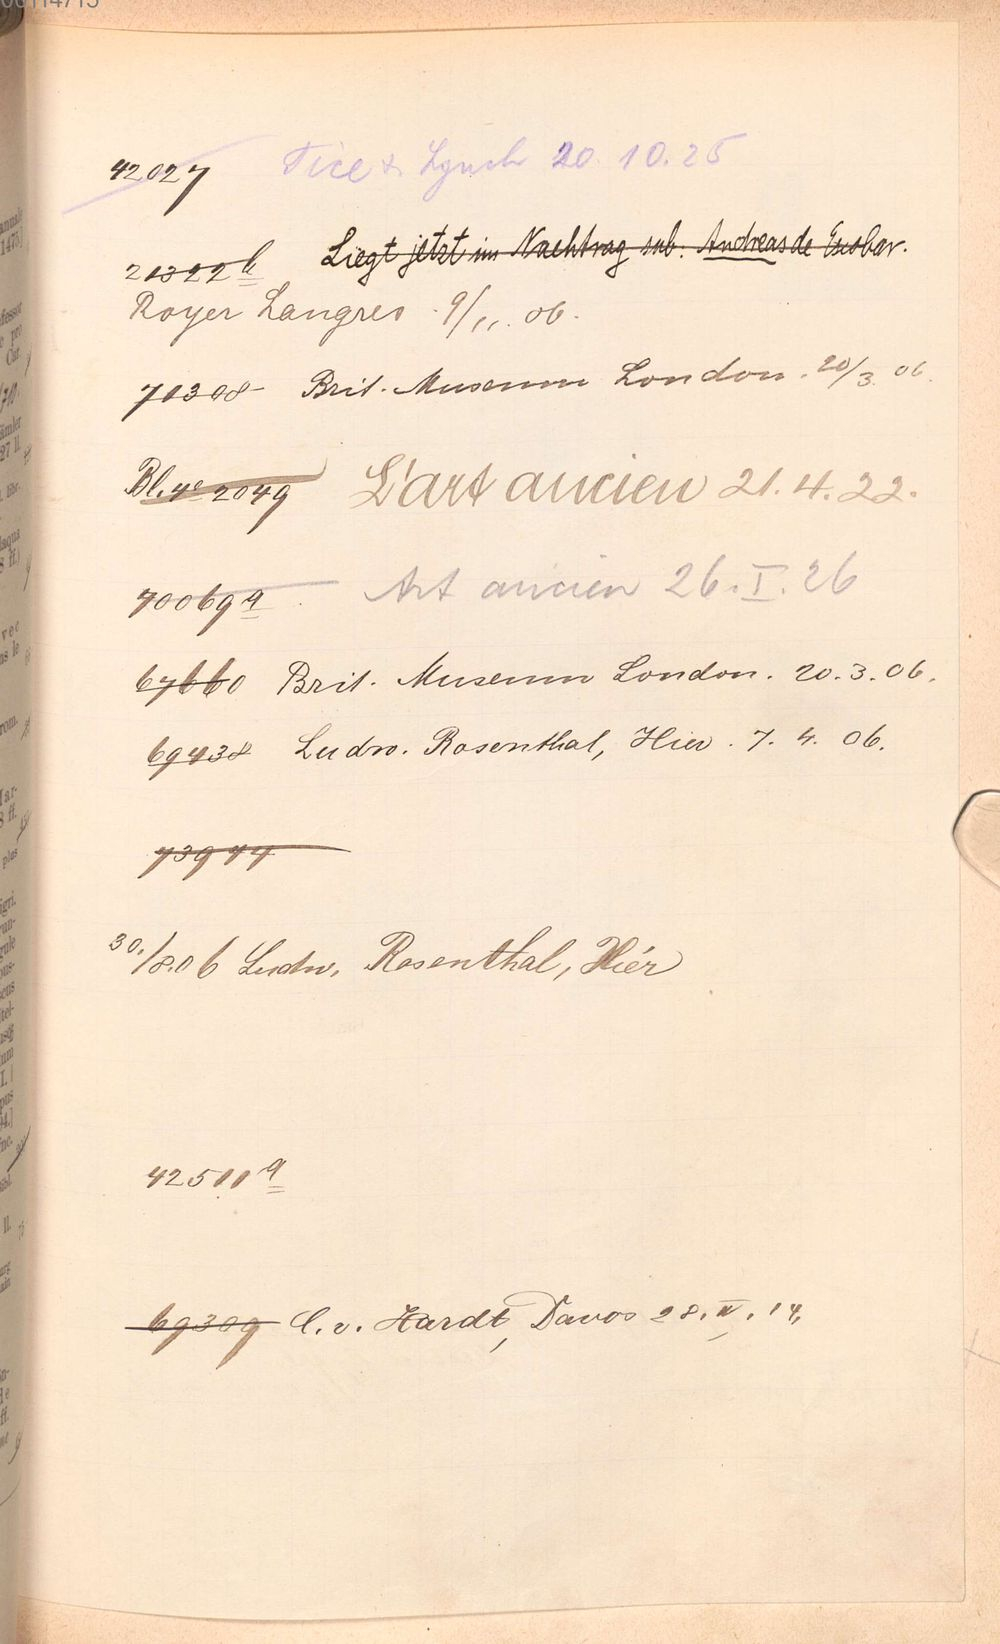 42027 Tice & Lynch 20. 10. 25
21322b Liegt jetzt im Nachtrag sub. Andreas de Escobar.
Royer Langres 9/11. 06.
71308 Brit. Museum London. 20/3. 06.
Bl. 4° 2049 L'art ancien 21. 4. 22.
70069a Art ancien 26. I. 26
67660 Brit. Museum London. 20. 3. 06.
69438 Ludw. Rosenthal, Hier. 7. 4. 06.
73944
30./8.06 Ludw. Rosenthal, Hier
42511a
69309 C. v. Hardt, Davos 28. IV. 14.